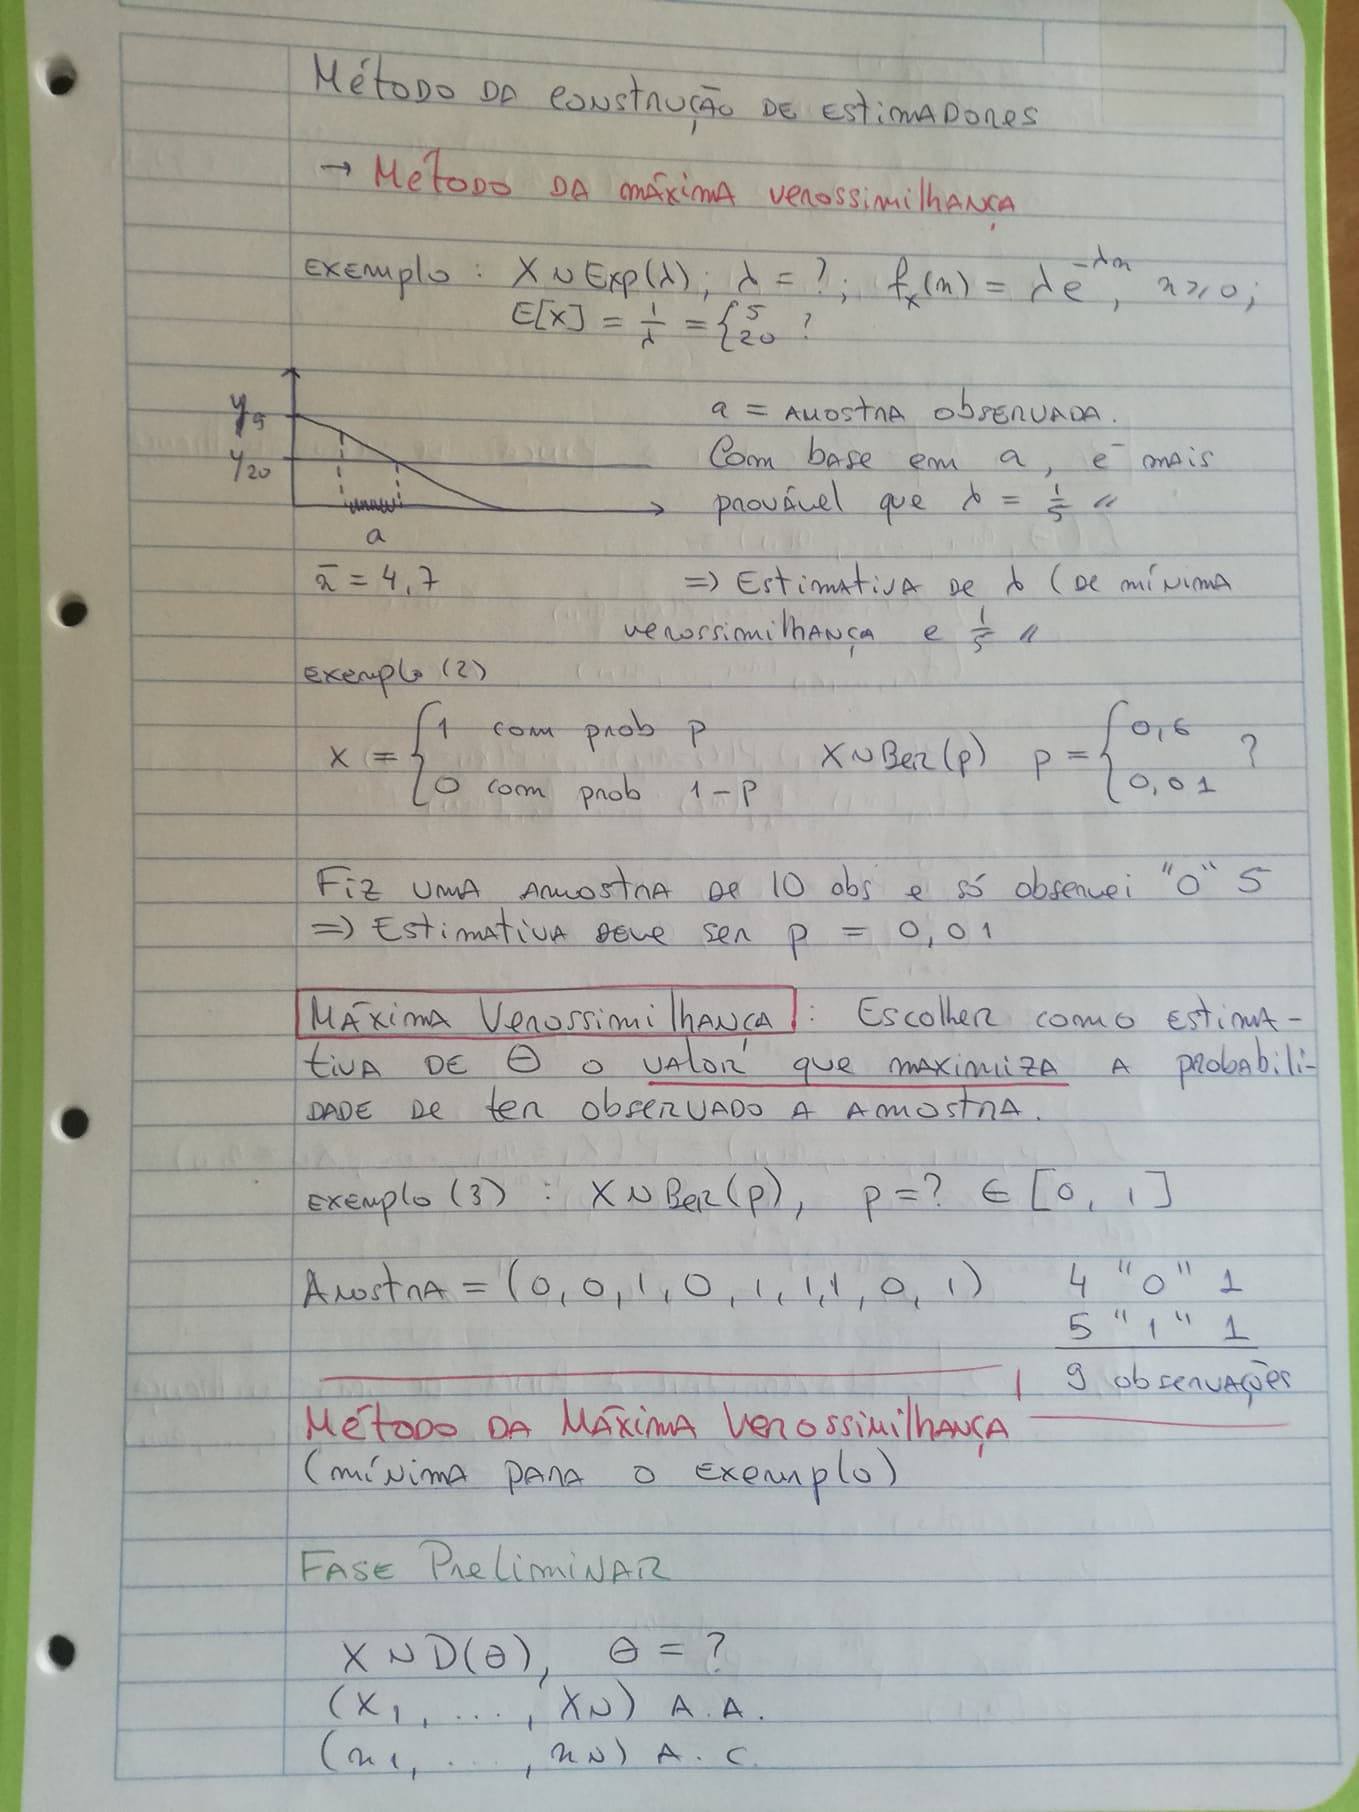 Método da construção de estimadores
→ Método da máxima verossimilhança
exemplo : X ~ Exp(λ); λ = ?; fₓ(x) = λe^(-λx), x ≥ 0;
E[X] = 1/λ = { 5 20 ?
a = amostra observada.
y5
Com base em a, é mais
y20
provável que λ = 1/5 //
a
x̄ = 4,7 => Estimativa de λ (de mínima
verossimilhança e 1/5 //
exemplo (2)
X = { 1 com prob p
0 com prob 1-p
X ~ Ber(p) p = { 0,6 0,01 ?
Fiz uma amostra de 10 obs e só observei "0" s
=> Estimativa deve ser p = 0,01
Máxima Verossimilhança : Escolher como estima-
tiva de θ o valor que maximiza a probabili-
dade de ter observado a amostra.
exemplo (3) : X ~ Ber(p), p = ? ∈ [0, 1]
Amostra = (0, 0, 1, 0, 1, 1, 1, 0, 1) 4 "0" 1
5 "1" 1
9 observações
Método da Máxima Verossimilhança
(mínima para o exemplo)
Fase Preliminar
X ~ D(θ), θ = ?
(X1, ..., XN) A.A.
(x1, ..., xN) A.C.